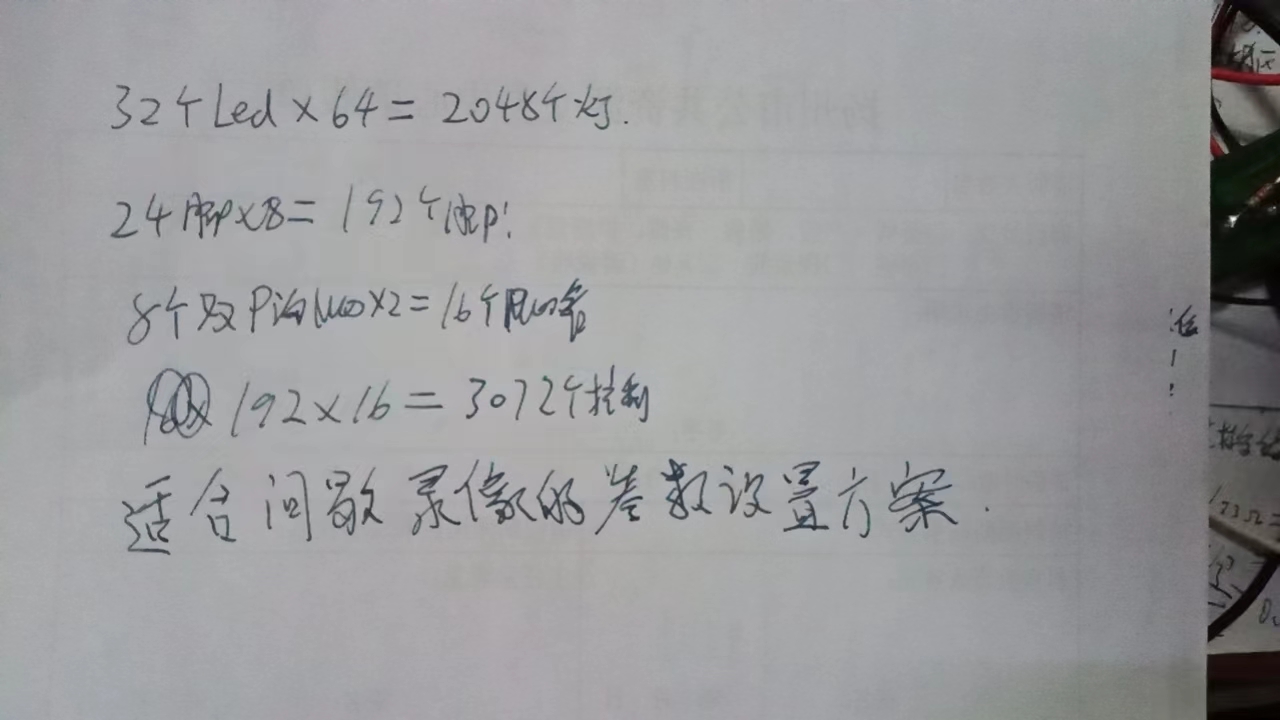 32个Led×64=2048个灯.
24脚×8=192个脚!
8个双P沟MOS×2=16个
192×16=3072个控制
适合间歇录像的参数设置方案.